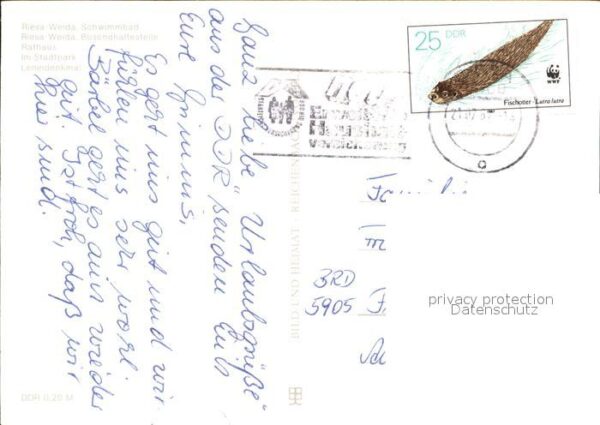 Riesa Weida, Schwimmbad
Riesa Weida, Bushaltestelle
Rathaus
Im Stadtpark
Lenindenkmal
Ganz liebe Urlaubsgrüße
aus der "DDR" senden Euch
Eure
Es geht uns gut und wir
fühlen uns sehr wohl.
Bärbel geht es auch wieder
gut. Ist froh, daß wir
hier sind.
DDR 0,20 M
BILD UND HEIMAT REICHENBACH
25 DDR
WWF
Fischotter · Lutra lutra
BRD
5905 F.
privacy protection
Datenschutz